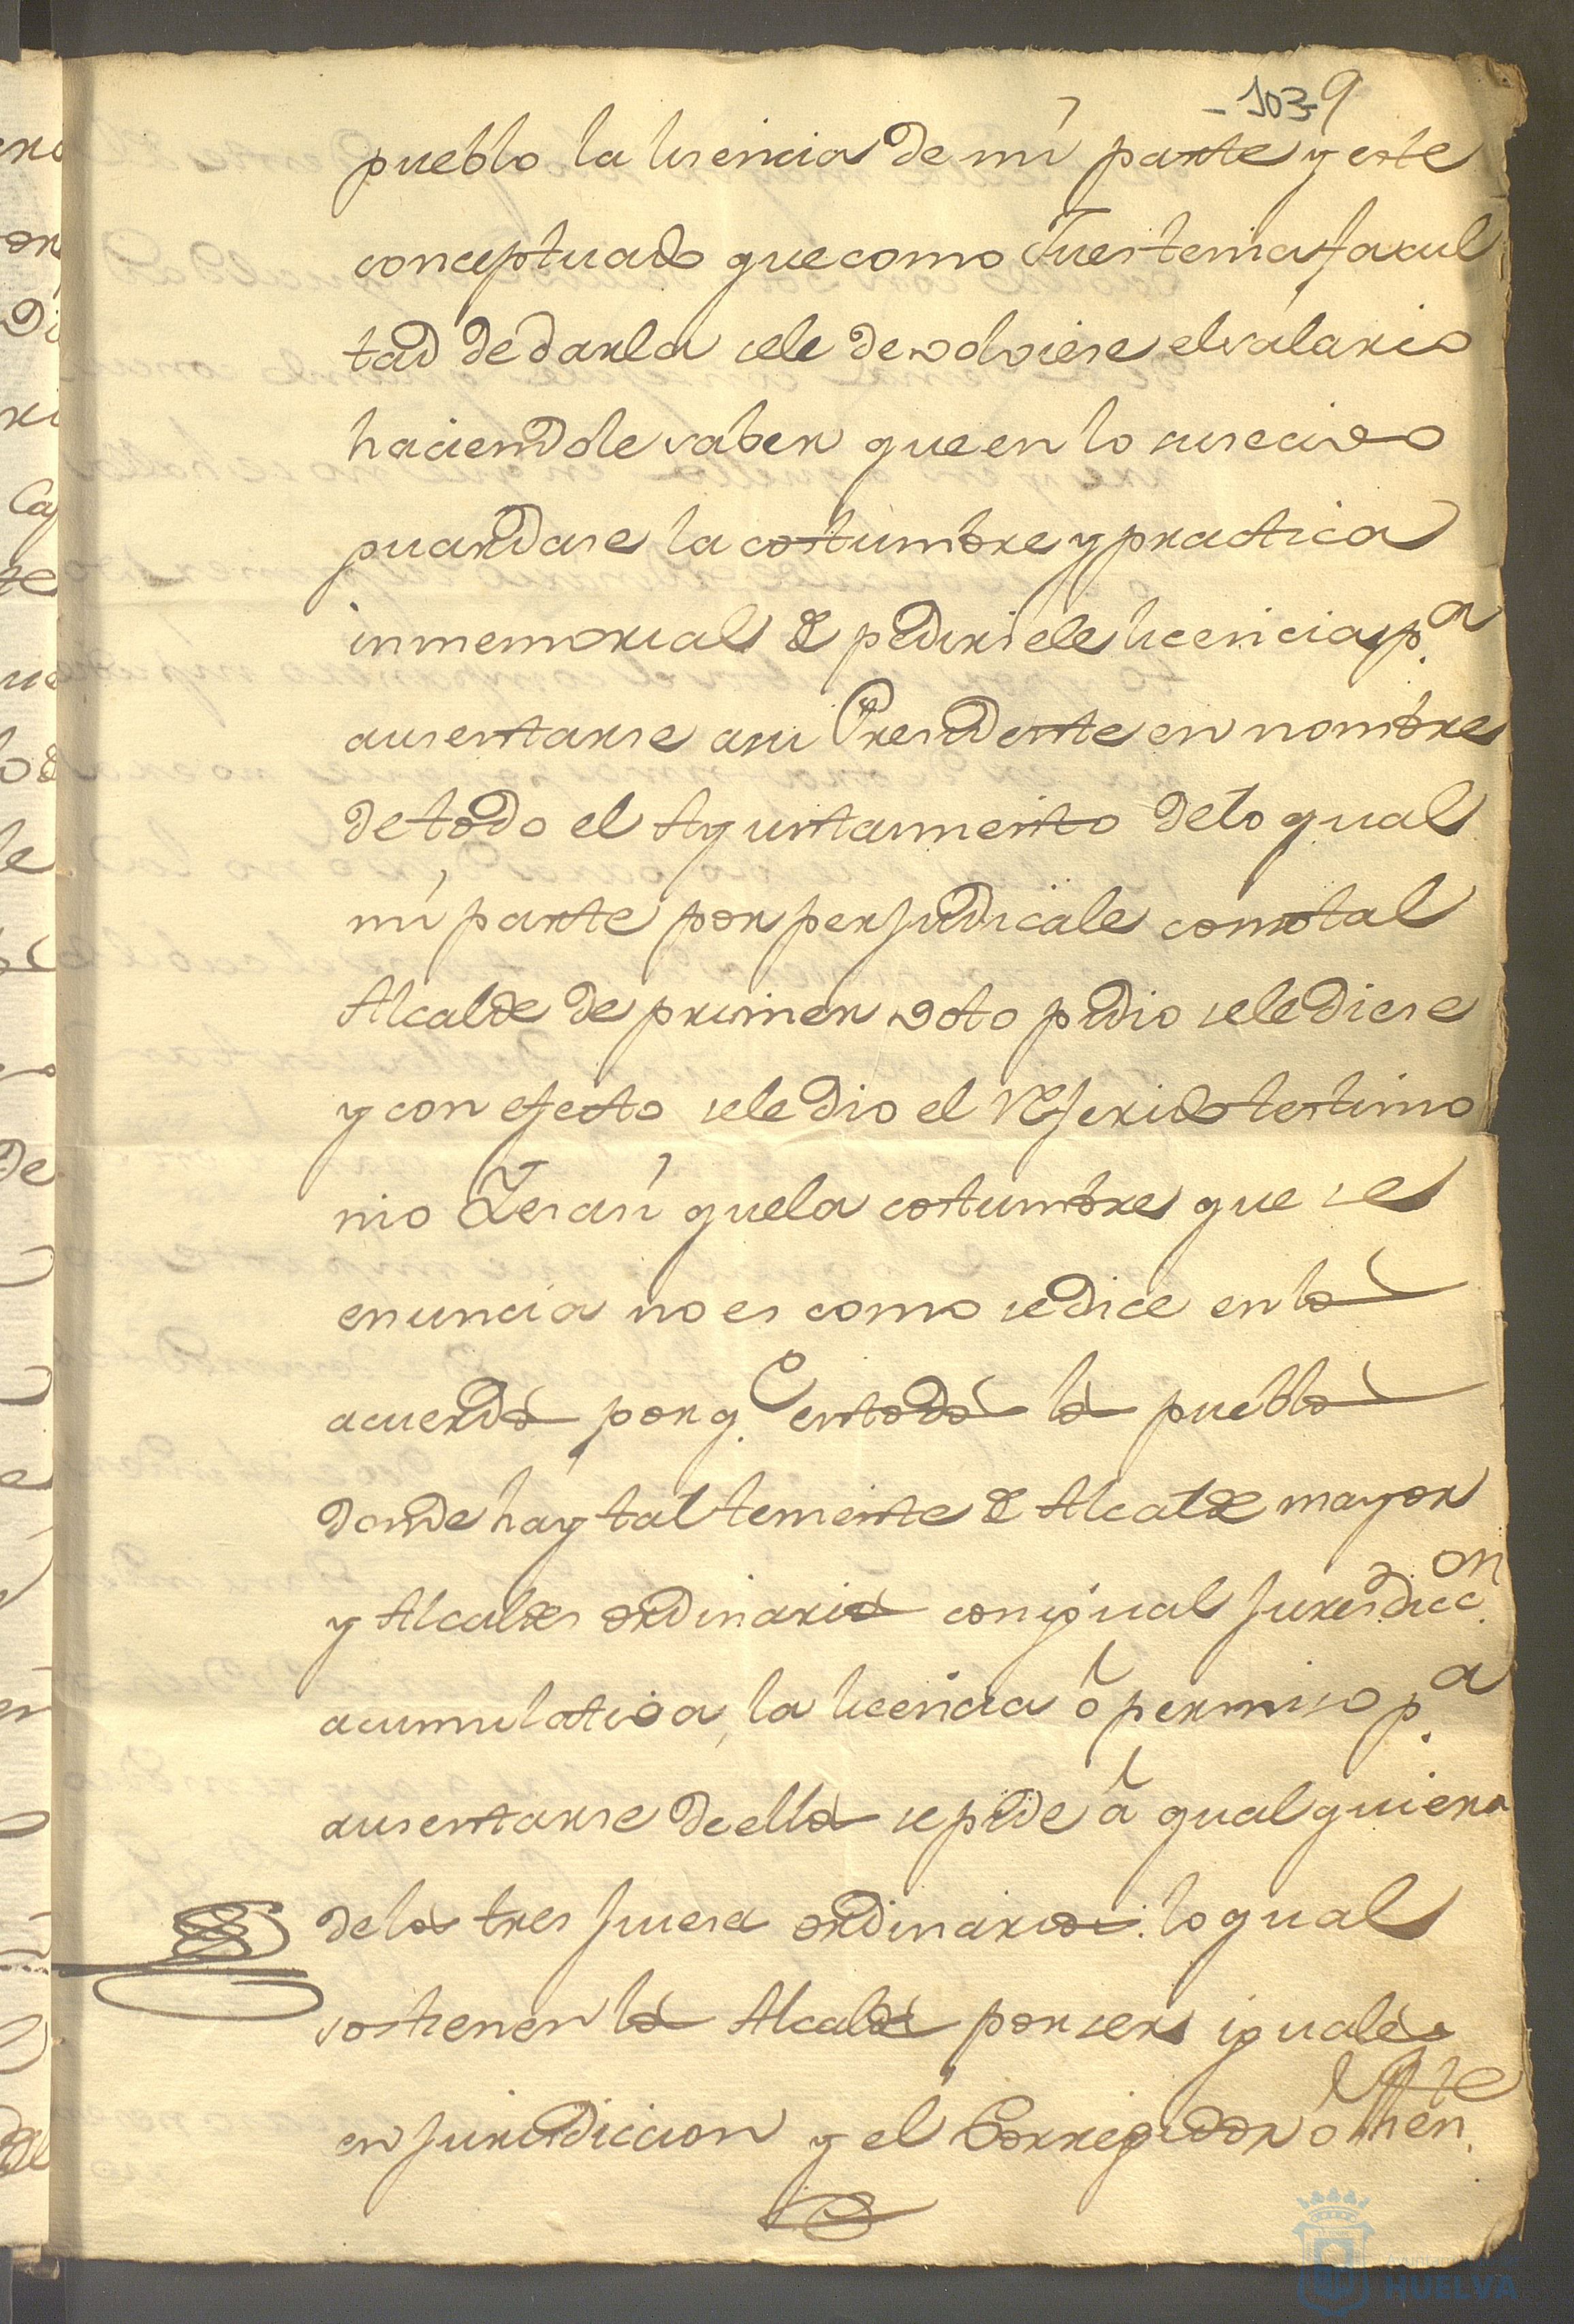 -103- 9
pueblo la lisencia de mi parte y este
conceptuado que como Jues tenia facul
tad de darla sele devolviese el salario
haciendole saber que en lo susecivo
guardase la costumbre y practica
inmemorial de pedirsele licencia p.a
ausentarse a su Presidente en nombre
de todo el Ayuntamiento de lo qual
mi parte por perjudicale como tal
Alcalde de primer voto pidio sele diese
y con efecto sele dio el referido testimo
nio Y es asi que la costumbre que se
enuncia no es como se dice en los
acuerdos porq.e en todos los pueblos
donde hay tal teniente de Alcalde mayor
y Alcaldes ordinarios con igual jurisdicc.on
acumulativa, la licencia ó permiso p.a
ausentarse de ellos se pide á qualquiera
de los tres jueses ordinarios: lo qual
sostienen los Alcaldes por ser iguales
en jurisdiccion y el Corregidor ó then.te
HUELVA